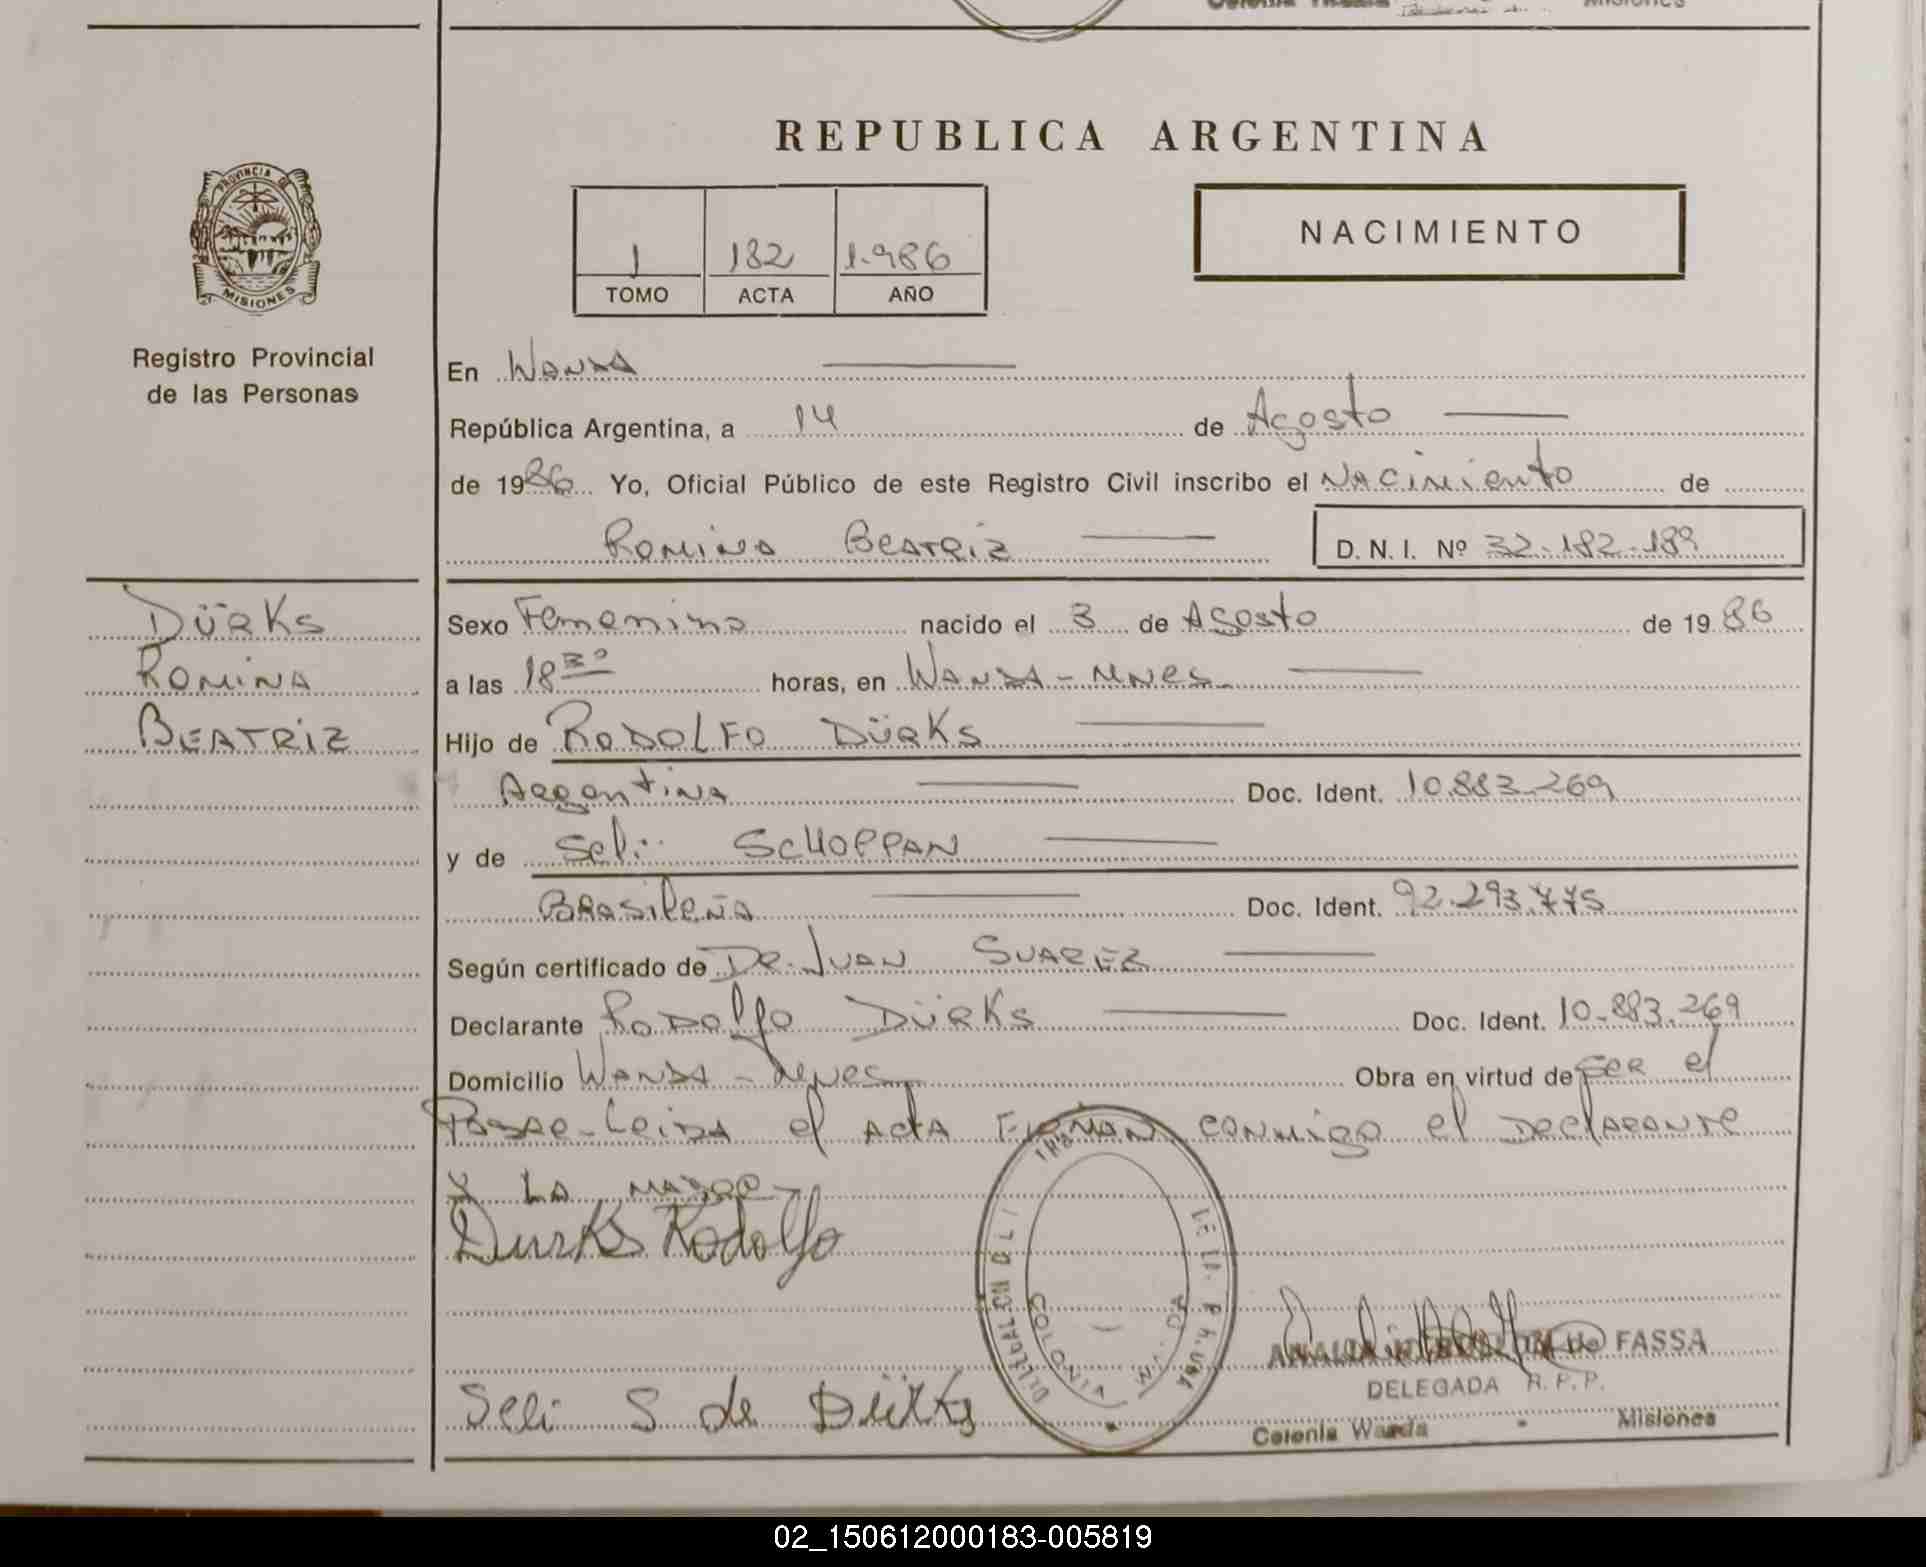 REPUBLICA ARGENTINA
PROVINCIA DE
MISIONES
Registro Provincial
de las Personas
1 182 1.986
TOMO ACTA AÑO
NACIMIENTO
En Wanda
República Argentina, a 14 de Agosto
de 1986 Yo, Oficial Público de este Registro Civil inscribo el Nacimiento de
Romina Beatriz D.N.I. Nº 32.182.189
Dürks
Romina
Beatriz
Sexo Femenino nacido el 3 de Agosto de 1986
a las 18 30 horas, en Wanda - Mnes.
Hijo de Rodolfo Dürks
Argentina Doc. Ident. 10.883.269
y de Seli Schoppan
Brasileña Doc. Ident. 92.293.775
Según certificado de Dr. Juan Suarez
Declarante Rodolfo Dürks Doc. Ident. 10.883.269
Domicilio Wanda - Mnes Obra en virtud de ser el
Padre - Leida el acta Firman conmigo el Declarante
y la madre -
Durks Rodolfo
Seli S de Dürks
COLONIA
FASSA
DELEGADA R.P.P.
Colonia Wanda - Misiones
02_150612000183-005819